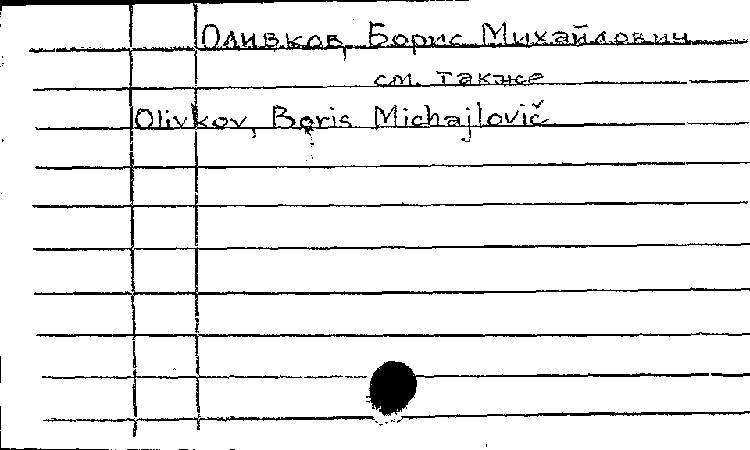 Оливков, Борис Михайлович
см. также
Olivkov, Boris Michajlovič